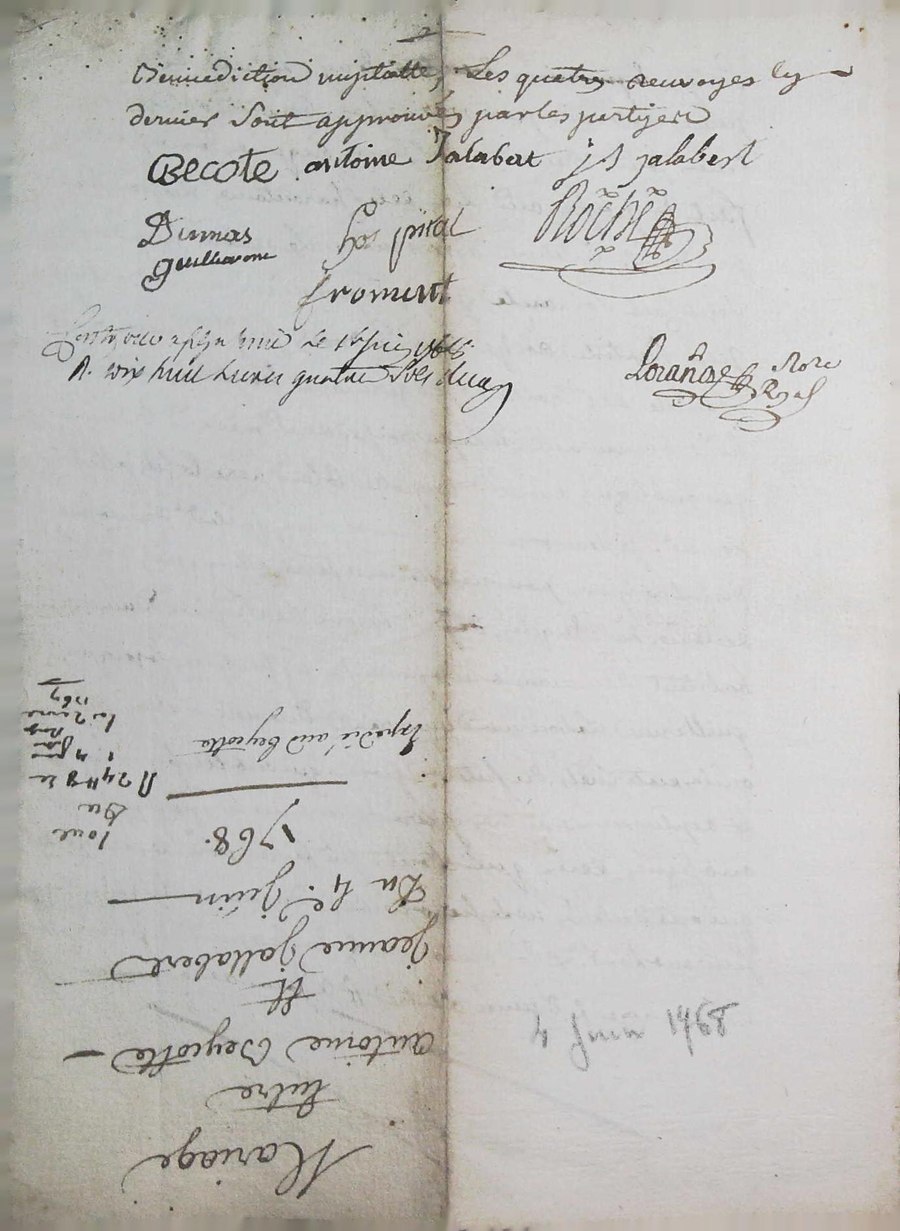 Benediction nuptialle, Les quatres renvoyes cy
dernier sont approuvés par les partyes
Becote antoine Jalabert js jalabert
Dumas
guilhaume
hospital
Roche
froment
Le 1768
A dix huit Livres quatre sols
Lorange Nore
Royal
Mariage
Entre
Antoine Beycotte
Et
Jeanne Jallabert
Du 4e Juin
1768.
Expedié aud Beycotte
4 Juin 1768